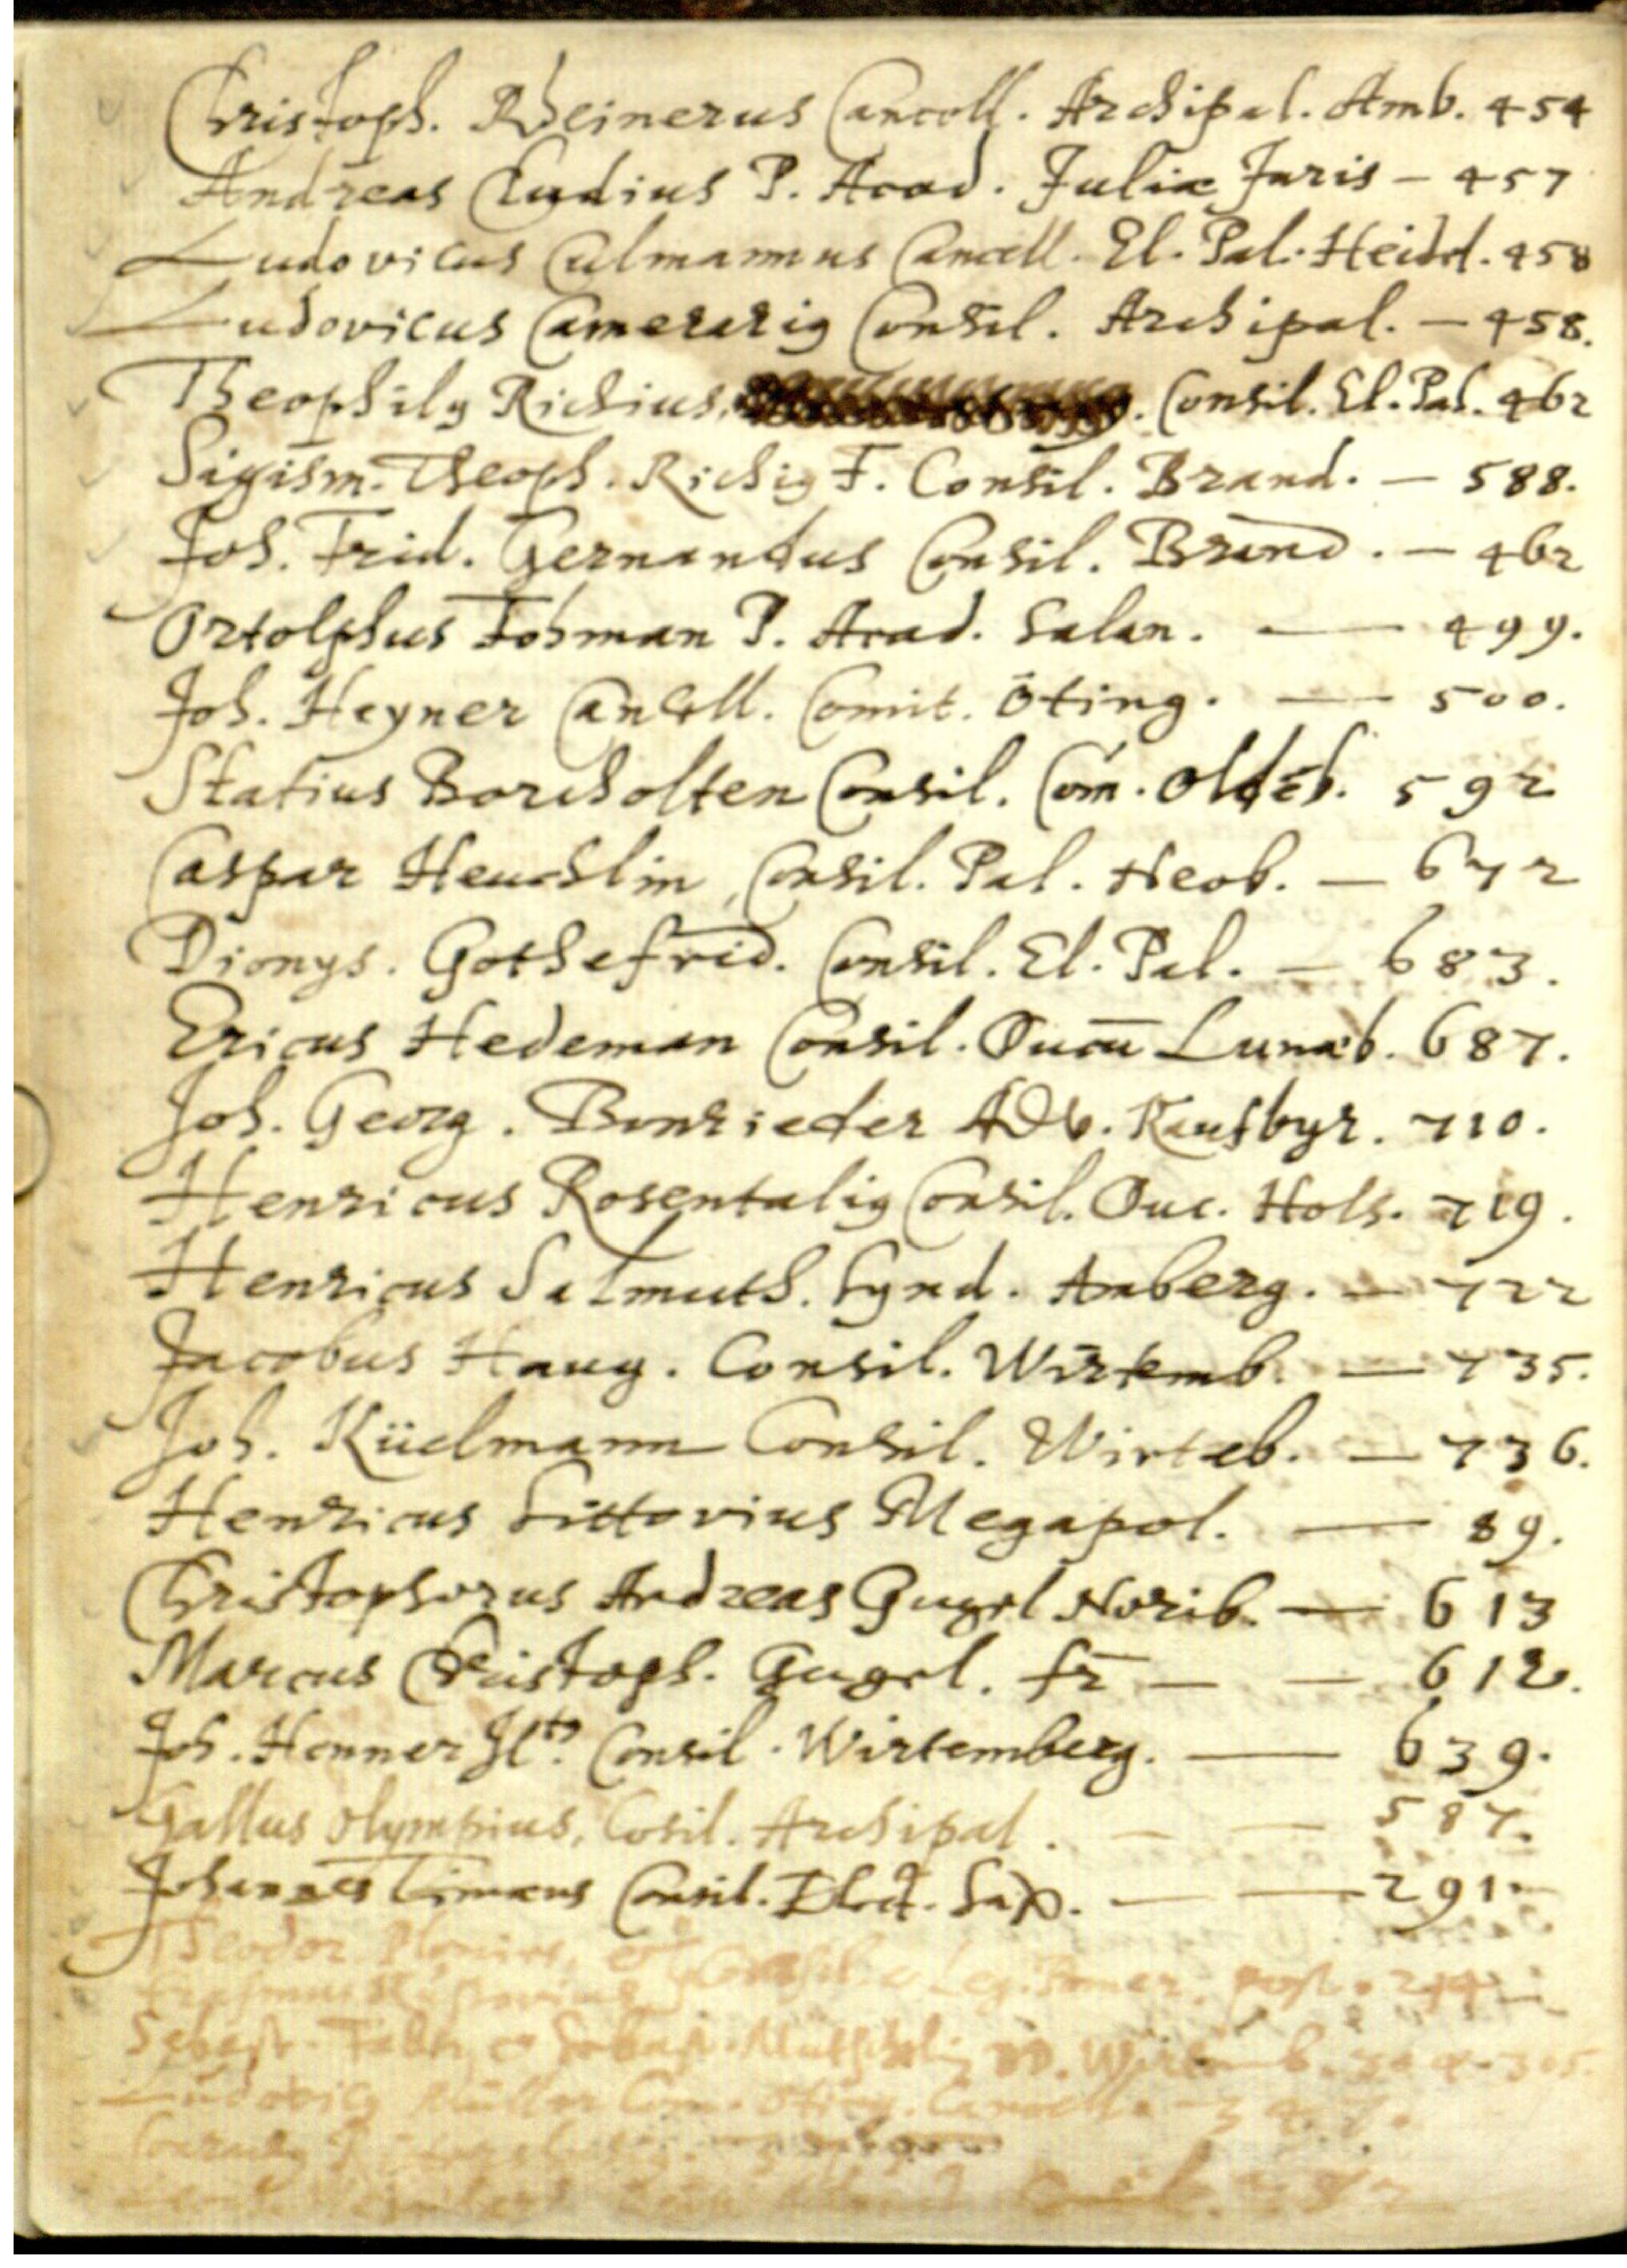 Christoph. Rheinerus Cancell. Archipal. Amb. 454
Andreas Cludius P. Acad. Juliæ Juris - 457
Ludovicus Culmannus Cancell. El. Pal. Heidel. 458
Ludovicus Camerarig Consil. Archipal. - 458.
Theophilg Richius, . Consil. El. Pal. 462
Sigism. Theoph. Richig F. Consil. Brand. - 588.
Joh. Frid. Gernandus Consil. Brand. - 462
Ortolphus Fohman P. Acad. Salan. - 499.
Joh. Heyner Cancell. Comit. Öting. - 500.
Statius Borcholten Consil. Com. Oldēb. 592
Caspar Heuchlin, Consil. Pal. Neob. - 672
Dionys. Gothefrid. Consil. El. Pal. - 683.
Ericus Hedeman Consil. Ducū Lunæb. 687.
Joh. Georg. Bonrieder Adv. Kaufbyr. 710.
Henricus Rosentalig Consil. Duc. Hols. 719.
Henricus Salmuth. Synd. Amberg. - 722
Jacobus Haug. Consil. Wirtemb. - 735.
Joh. Küelmann Consil. Wirteb. - 736.
Henricus Sittovius Megapol. - 89.
Christophorus Andreas Gugel Norib. - 613
Marcus Christoph. Gugel. fr - - 612.
Joh. Henner Consil. Wirtemberg. - 639.
Gallus Olympius, Cōsil. Archipal. - - 587.
Johannes Timæus Consil. Elect. Sax. - - 291.
Theodor
Sebast.
Ludovicg Müller Com. Cancell.